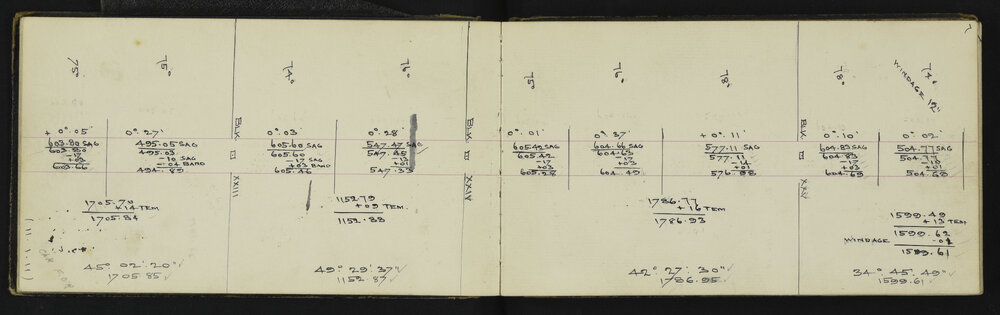 75°
75°
74°
76°
75°
76°
78°
78°
74°
WINDAGE 12"
BLK III XXIII
BLK III XXIV
BLK III XXV
+ 0°.05'
603.80 SAG
603.80
-17
+03
603.66
0°.27'
495.05 SAG
495.03
-10 SAG
-.04 BAND
494.89
0°.03'
605.60 SAG
605.60
-17 SAG
+03 BAND
605.46
0°.28'
547.47 SAG
547.45
-13
+01
547.33
0°.01'
605.42 SAG
605.42
-17
+03
605.28
0°.37'
604.66 SAG
604.63
-17
+03
604.49
+ 0°.11'
577.11 SAG
577.11
-14
+01
576.98
0°.10'
604.83 SAG
604.83
-17
+03
604.69
0°.02'
504.77 SAG
504.77
-10
+01
504.68
1705.70
+14 TEM
1705.84
1152.79
+09 TEM
1152.88
1786.77
+16 TEM
1786.93
1599.49
+13 TEM
1599.62
WINDAGE -01
1599.61
45° 02' 20"
1705.85
49° 29' 37"
1152.87
42° 27' 30"
1786.95
34° 45' 49"
1599.61